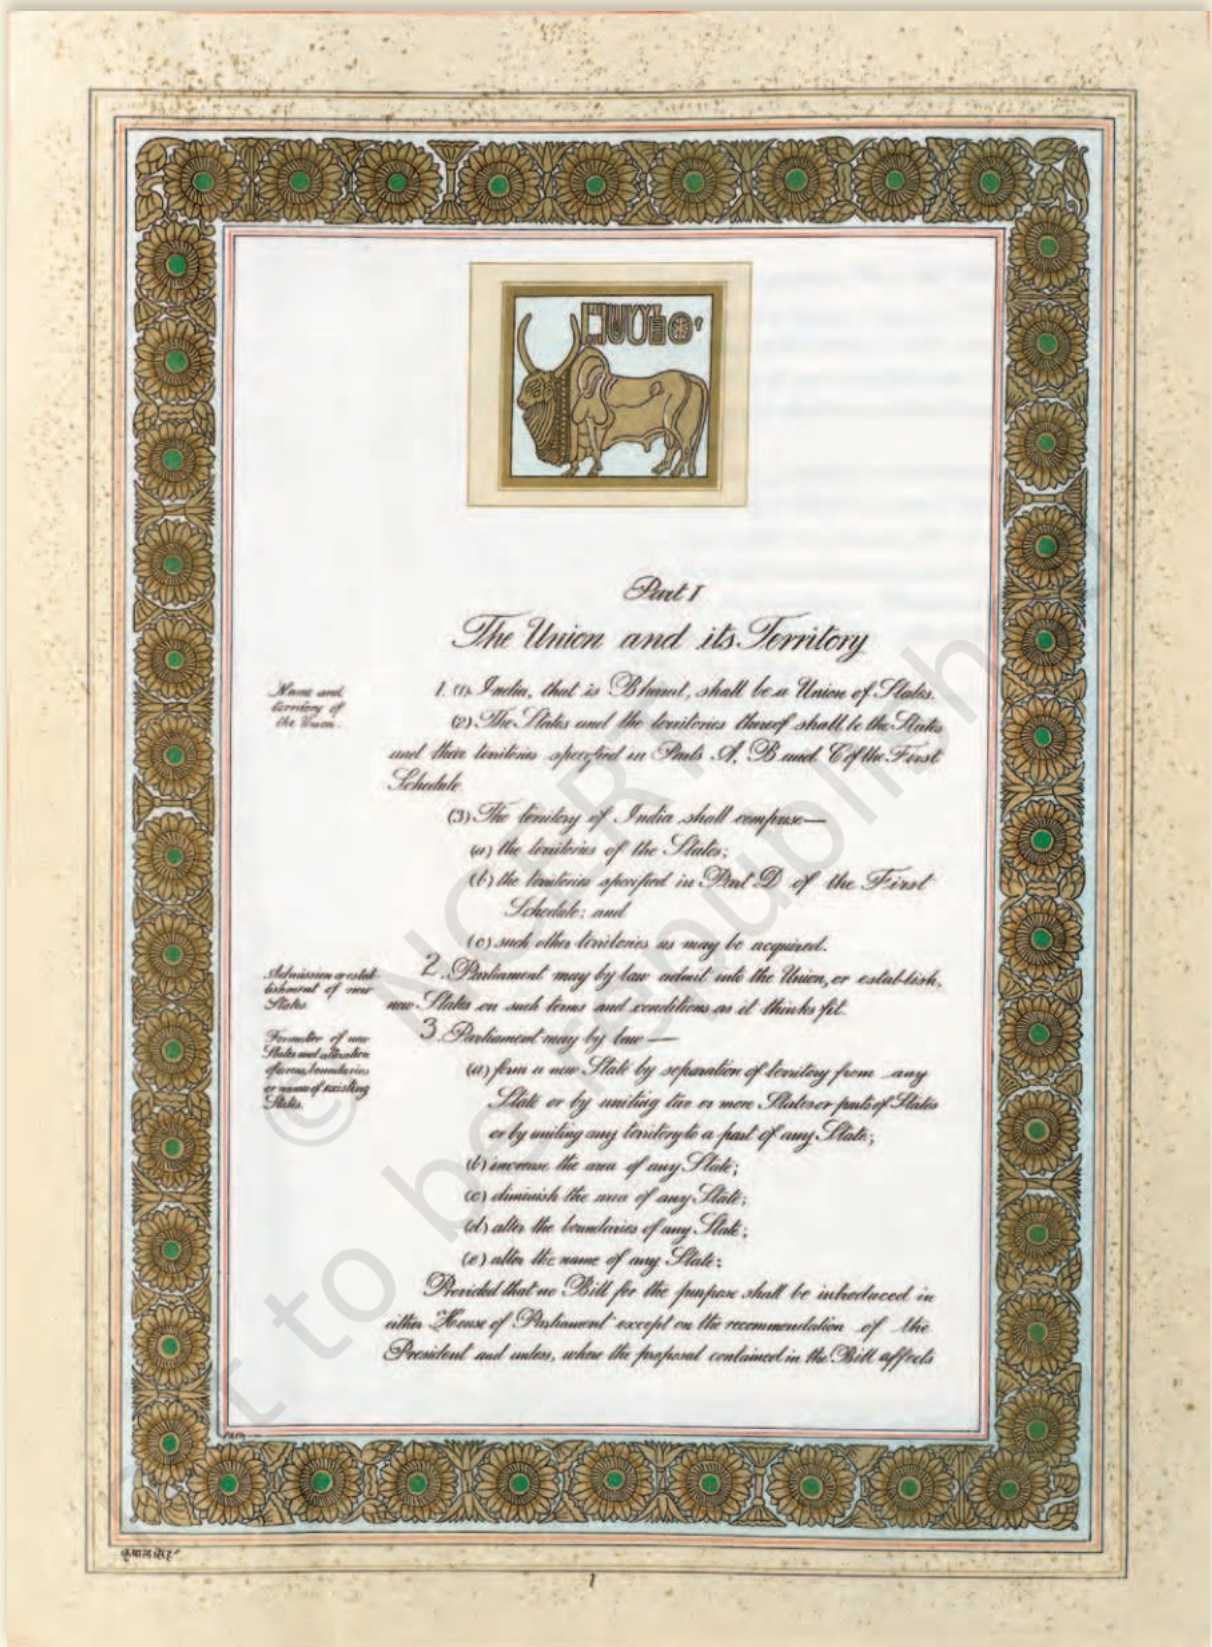 Part I
The Union and its Territory
Name and
territory of
the Union.
1. (1). India, that is Bharat, shall be a Union of States.
(2). The States and the territories thereof shall be the States
and their territories specified in Parts A, B and C of the First
Schedule.
(3). The territory of India shall comprise—
(a) the territories of the States;
(b) the territories specified in Part D of the First
Schedule; and
(c) such other territories as may be acquired.
Admission or estab-
lishment of new
States.
2. Parliament may by law admit into the Union, or establish,
new States on such terms and conditions as it thinks fit.
Formation of new
States and alteration
of areas, boundaries
or names of existing
States.
3. Parliament may by law —
(a) form a new State by separation of territory from any
State or by uniting two or more States or parts of States
or by uniting any territory to a part of any State;
(b) increase the area of any State;
(c) diminish the area of any State;
(d) alter the boundaries of any State;
(e) alter the name of any State:
Provided that no Bill for the purpose shall be introduced in
either House of Parliament except on the recommendation of the
President and unless, where the proposal contained in the Bill affects
1
© NCERT
not to be republished